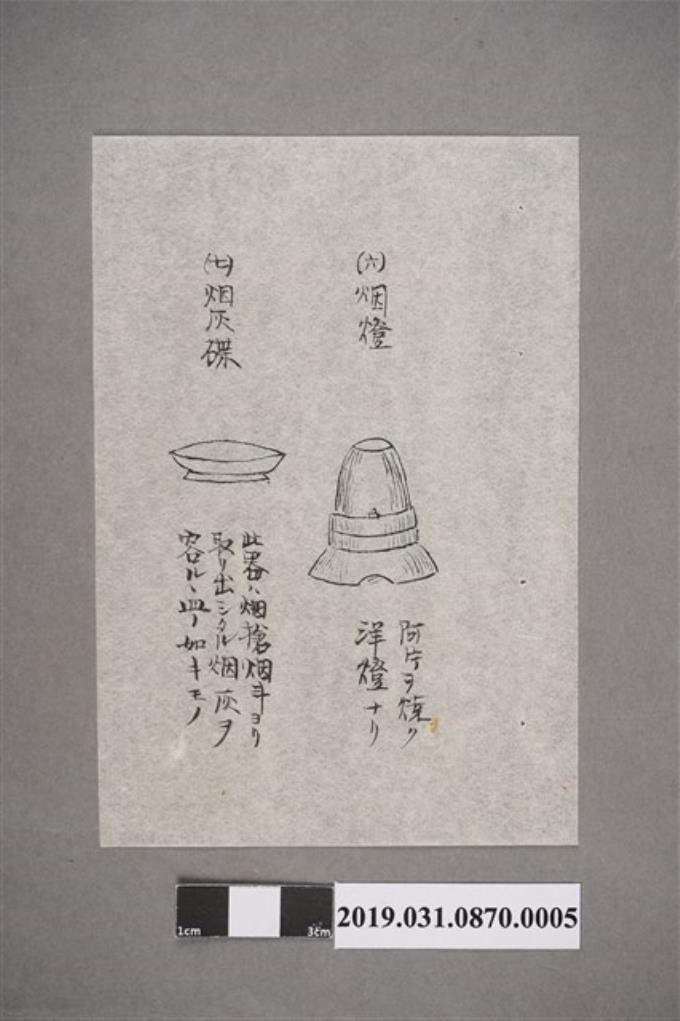 (六)烟燈
阿片ヲ焼ク
洋燈ナリ
(七)烟灰碟
此器ハ烟搶烟斗ヨリ
取リ出シタル烟灰ヲ
容ルヽ皿ノ如キモノ
1cm
3cm
2019.031.0870.0005